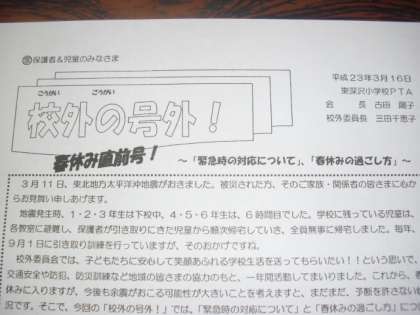 保護者&児童のみなさま
平成23年3月16日
東深沢小学校PTA
会長 古田 陽子
校外委員長 三田千恵子
こうがい ごうがい
校外の号外！
春休み直前号！
～「緊急時の対応について」、「春休みの過ごし方」～
3月11日、東北地方太平洋沖地震がおきました。被災された方、そのご家族・関係者の皆さまに心か
らお見舞い申しあげます。
地震発生時、1・2・3年生は下校中、4・5・6年生は、6時間目でした。学校に残っている児童は、
各教室に避難し、保護者が引き取りにきた児童から順次帰宅していき、全員無事に帰宅しました。毎年、
9月1日に引き取り訓練を行っていますが、そのおかげですね。
校外委員会では、子どもたちに安心して笑顔あふれる学校生活を送ってもらいたい！！という思いで、
交通安全や防犯、防災訓練など地域の皆さまの協力のもと、一年間活動してまいりました。これから、春
休みに入りますが、今後も余震がおこる可能性が大きいことを考えますと、まだまだ、予断を許さない状
況です。そこで、今回の「校外の号外！」では、「緊急時の対応について」と「春休みの過ごし方につい